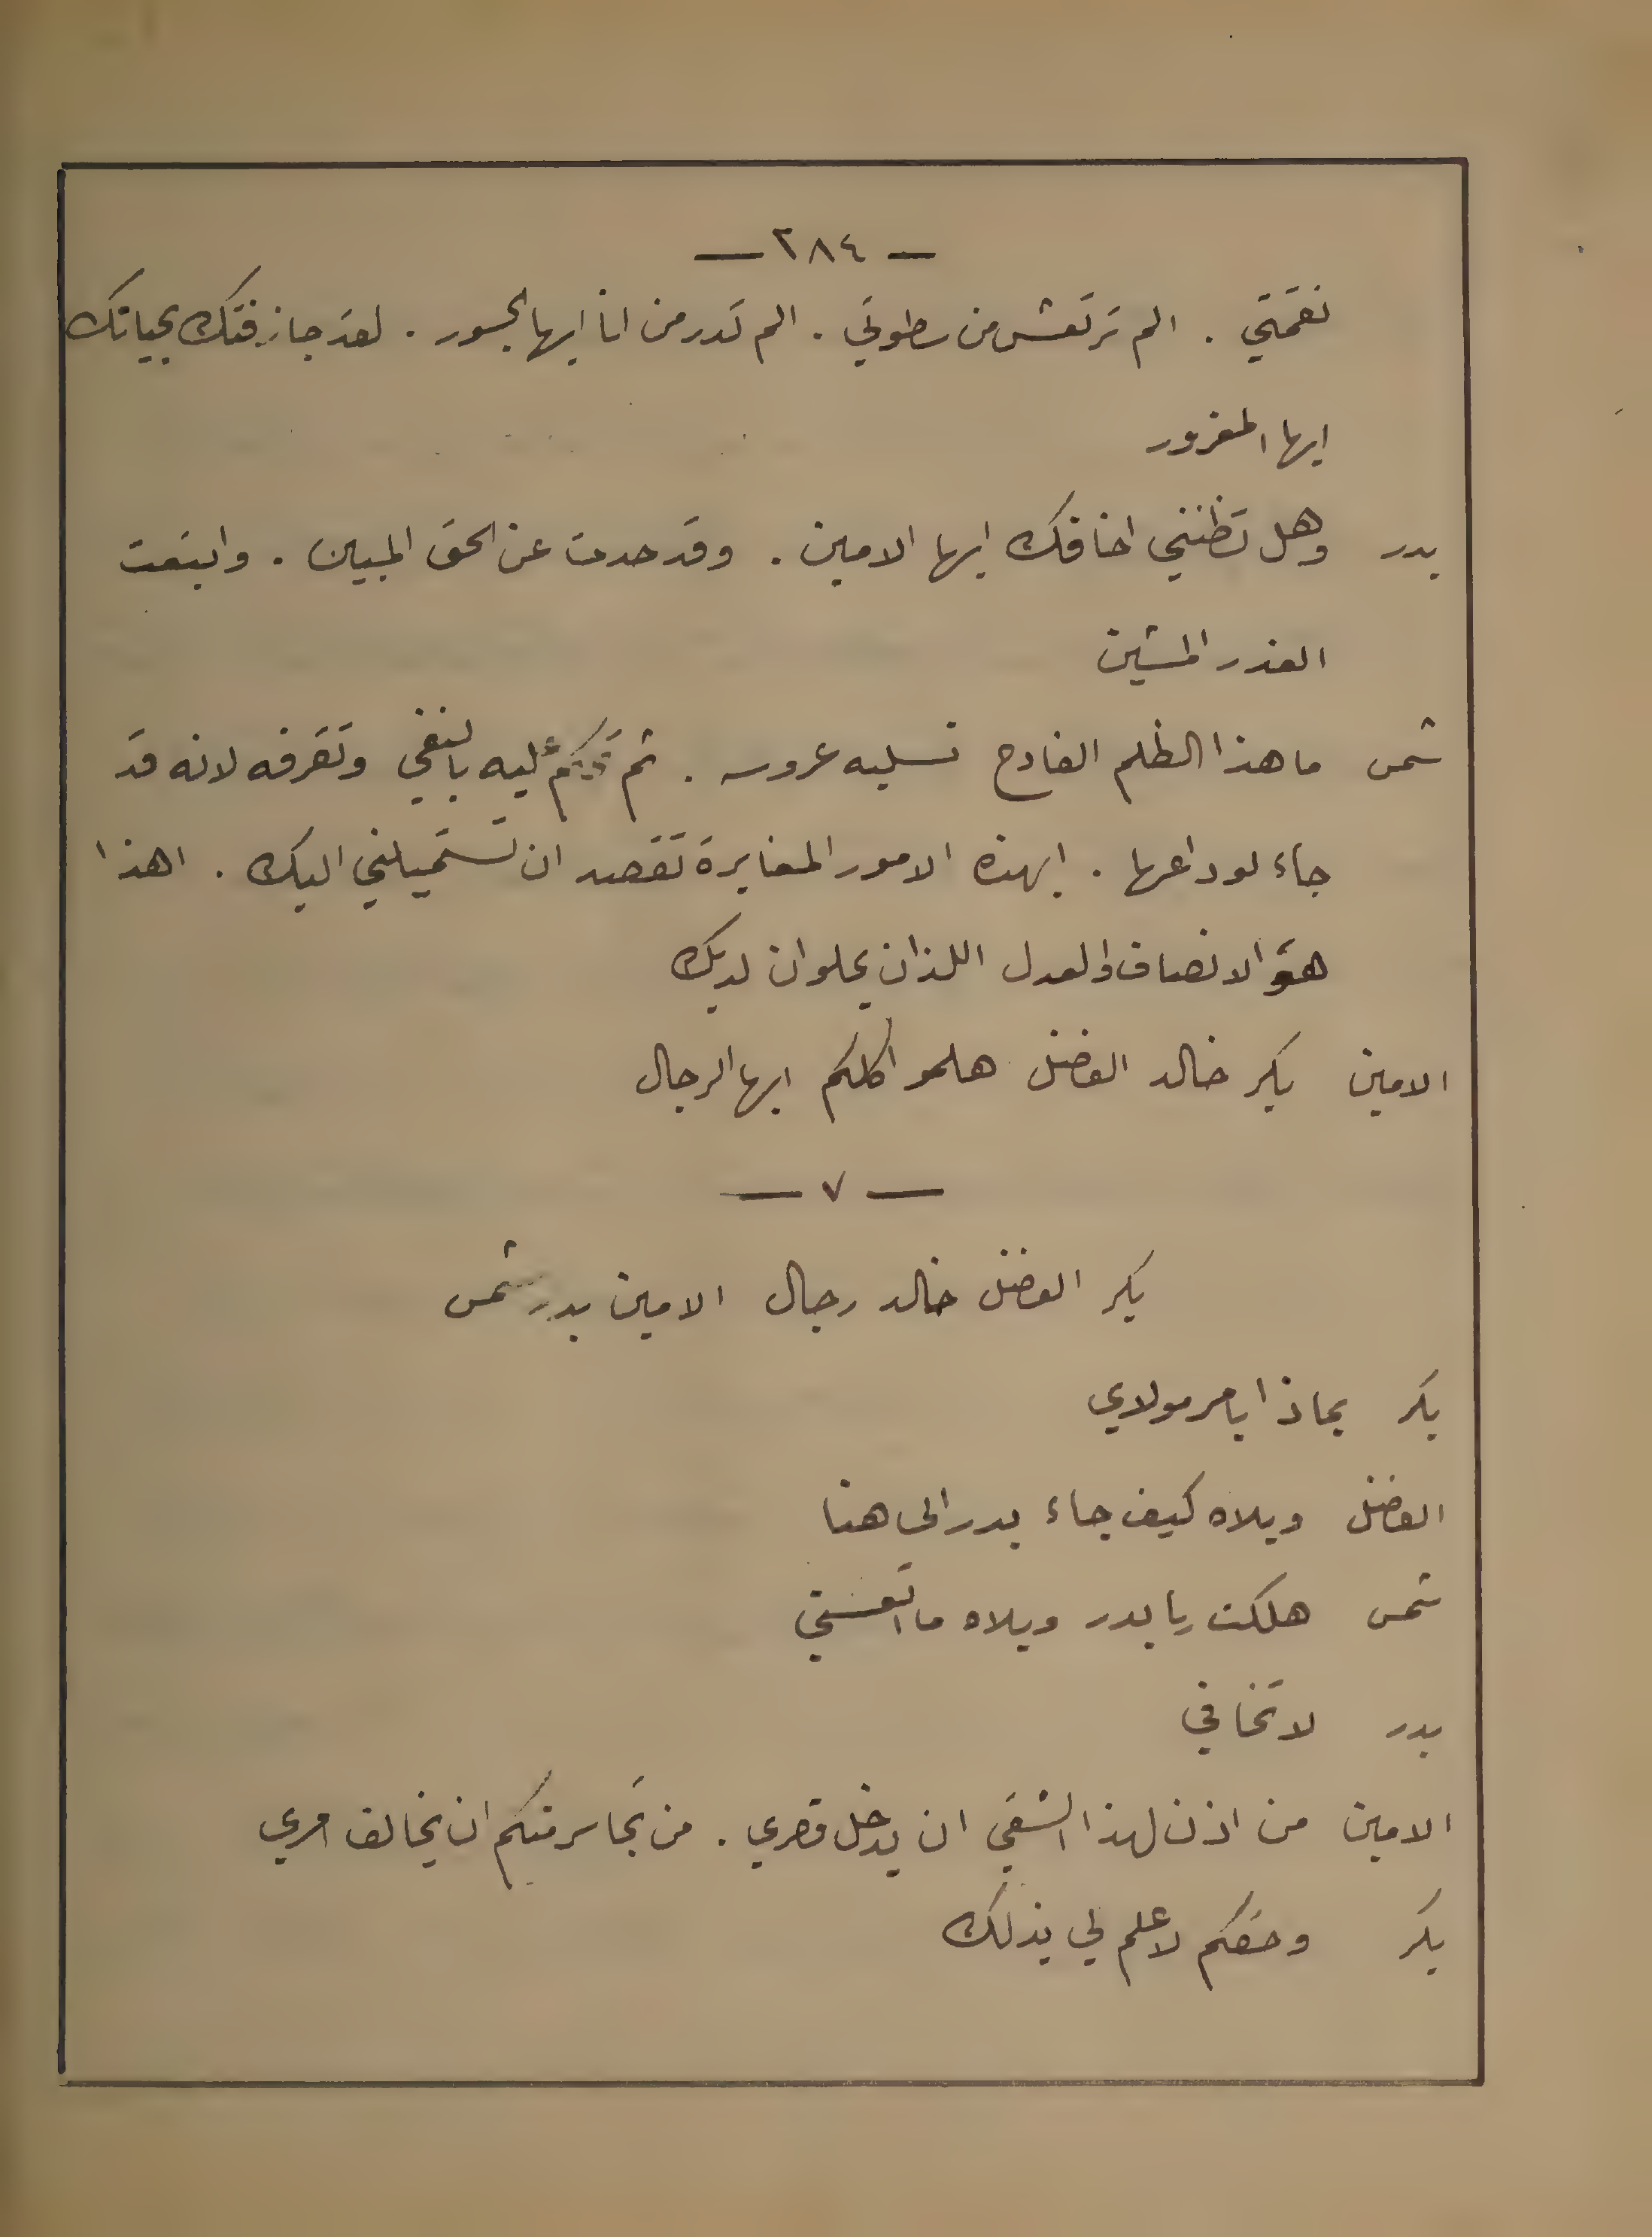 — ٢٨٤ —
نقمتي . الم ترتعش من سطوتي . الم تدر من انا ايها الجسور . لقد جازفتك بحياتك
ايها المغرور
بدر وهل تظنني اخافك ايها الامين . وقد حدت عن الحق المبين . واتبعت
الغدر المشين
شمس ما هذا الظلم الفادح تسلبه عروسه . ثم تحكم عليه بالنفي وتقرفه لانه قد
جاء لوداعها . ابهذه الامور المغايرة تقصد ان تستميلني اليك . اهذا
هو الانصاف والعدل اللذان يحلوان لديك
الامين بكر خالد الفضل هلموا كلكم ايها الرجال
— ٧ —
بكر الفضل خالد رجال الامين بدر شمس
بكر بماذا يامر مولاي
الفضل ويلاه كيف جاء بدر الى هنا
شمس هلكت يا بدر ويلاه ما اتعسني
بدر لا تخافي
الامين من اذن لهذا الشقي ان يدخل قصري . من تجاسر منكم ان يخالف امري
بكر وحقكم لا علم لي بذلك